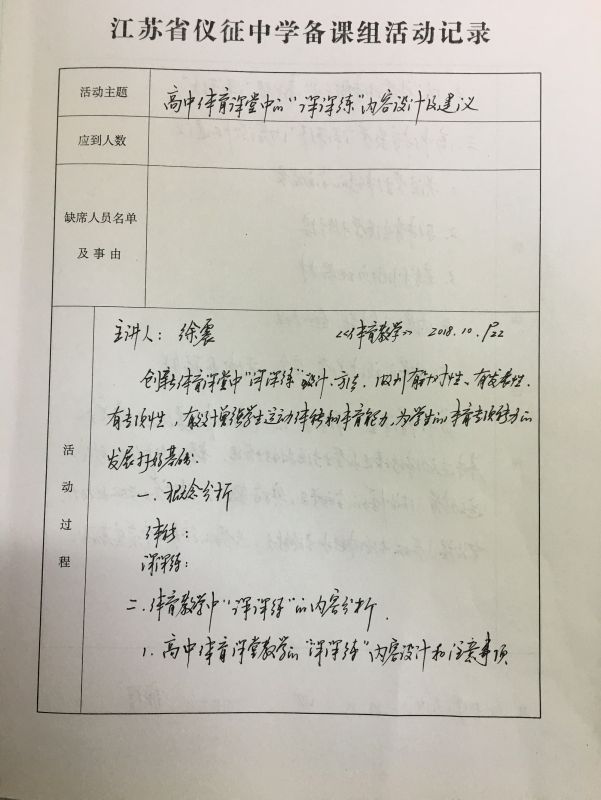 江苏省仪征中学备课组活动记录
活动主题
高中体育课堂中的“课课练”内容设计及建议
应到人数
缺席人员名单
及事由
活动过程
主讲人：徐震 《体育教学》 2018.10. P22
创新体育课堂中“课课练”设计、方法，做到有针对性、有发展性、
有专项性，有效增强学生运动体能和体育能力，为学生的体育专项能力的
发展打好基础.
一、概念分析
体能：
课课练：
二、体育教学中“课课练”的内容分析.
1. 高中体育课堂教学的“课课练”内容设计和注意事项